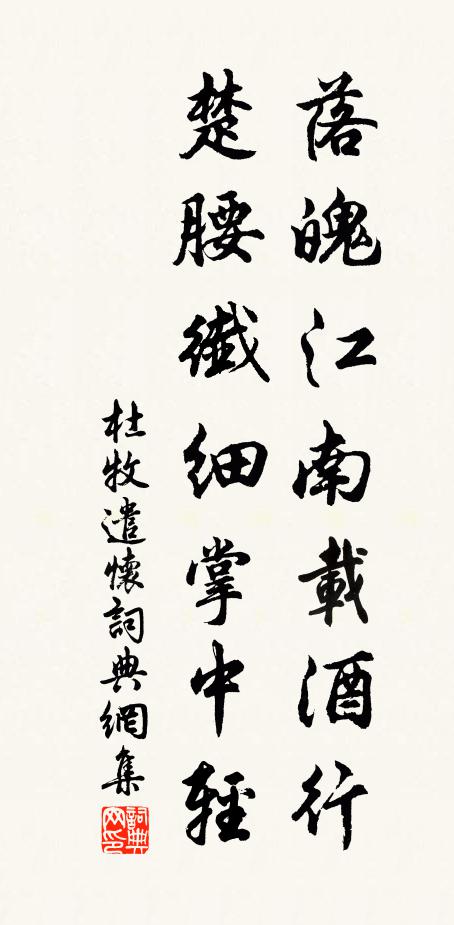 落魄江南載酒行
楚腰纖細掌中輕
杜牧遣懷詞典網集
詞典网印